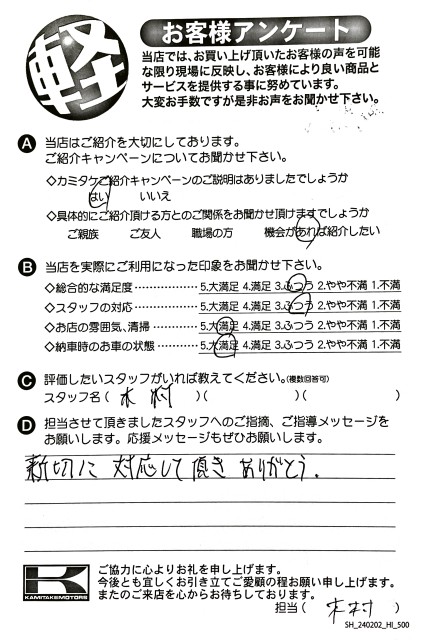 軽
お客様アンケート
当店では、お買い上げ頂いたお客様の声を可能
な限り現場に反映し、お客様により良い商品と
サービスを提供する事に努めています。
大変お手数ですが是非お声をお聞かせ下さい。
A 当店はご紹介を大切にしております。
ご紹介キャンペーンについてお聞かせ下さい。
◇カミタケご紹介キャンペーンのご説明はありましたでしょうか
はい いいえ
◇具体的にご紹介頂ける方とのご関係をお聞かせ頂けますでしょうか
ご親族 ご友人 職場の方 機会があれば紹介したい
B 当店を実際にご利用になった印象をお聞かせ下さい。
◇総合的な満足度 ⋯⋯⋯⋯⋯ 5.大満足 4.満足 3.ふつう 2.やや不満 1.不満
◇スタッフの対応 ⋯⋯⋯⋯⋯ 5.大満足 4.満足 3.ふつう 2.やや不満 1.不満
◇お店の雰囲気、清掃 ⋯⋯⋯ 5.大満足 4.満足 3.ふつう 2.やや不満 1.不満
◇納車時のお車の状態 ⋯⋯⋯ 5.大満足 4.満足 3.ふつう 2.やや不満 1.不満
C 評価したいスタッフがいれば教えてください。(複数回答可)
スタッフ名 ( 木村 )( )( )
D 担当させて頂きましたスタッフへのご指摘、ご指導メッセージを
お願いします。応援メッセージもぜひお願いします。
新切に 対応して頂き ありがとう.
K
KAMITAKEMOTORS
ご協力に心よりお礼を申し上げます。
今後とも宜しくお引き立てご愛顧の程お願い申し上げます。
またのご来店を心からお待ちしております。
担当 ( 木村 )
SH_240202_HI_500